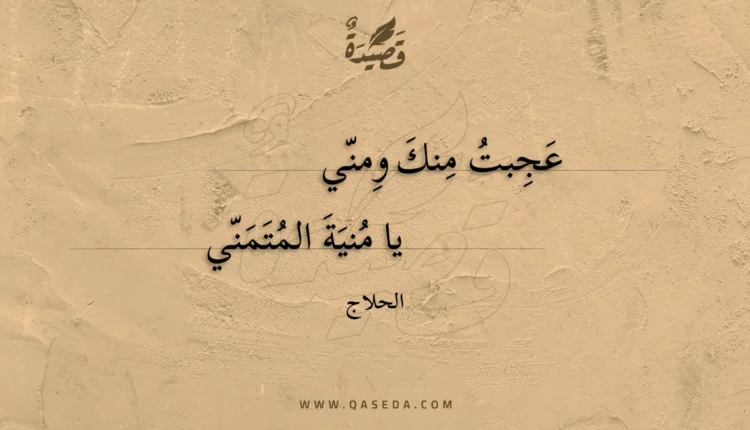 قَصِيدَةٌ
عَجِبتُ مِنكَ وِمنّي
يا مُنيَةَ المُتَمَنّي
الحلاج
WWW.QASEDA.COM